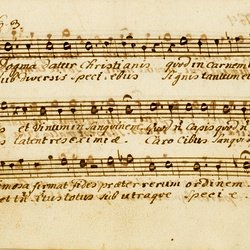 Dogma datur Christianis quod in carnem
Sub diversis speciebus signis tantum
et Vinum in Sanguinem Quod n Capis quod n
latent res eximiæ Caro Cibus Sanguis
mosa firmat fides præter rerum ordinem
et tn Xtus totus sub utraque specie